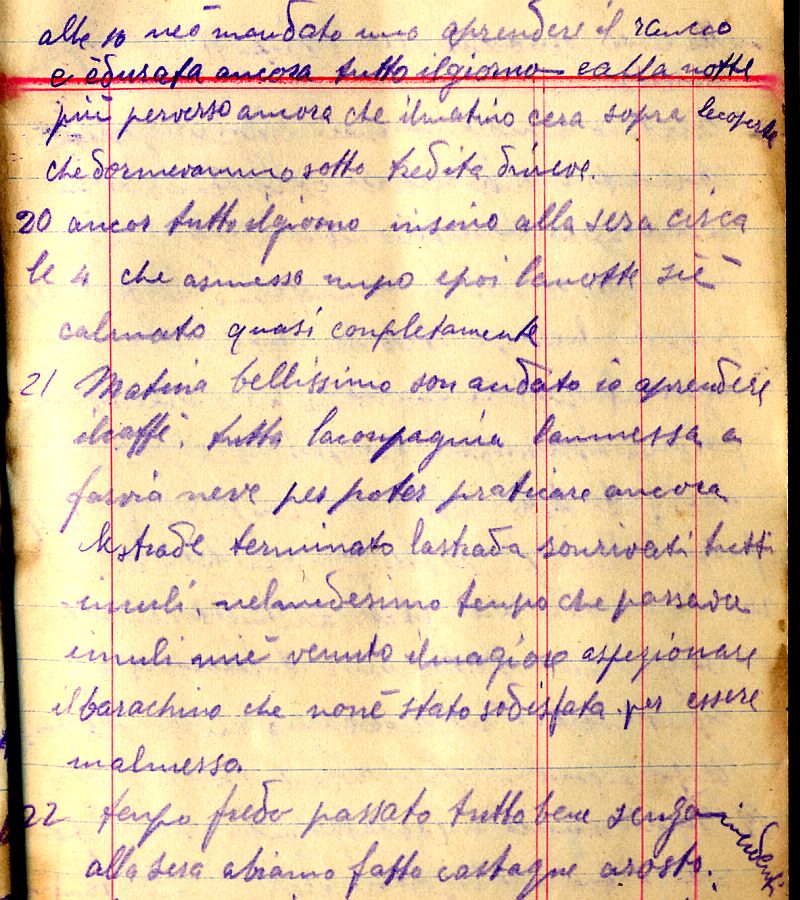 alle 10 neò mandato uno aprendere il rancio
e èdurata ancora tutto ilgiorno ealla notte
più perverso ancora che ilmatino cera sopra lecoperte
chedormevammo sotto tredita dineve.
20 ancor tutto ilgiorno insino alla sera circa
le 4 che asmesso unpo epoi lanotte siè
calmato quasi conpletamente
21 Matina bellissimo son andato io aprendere
ilcaffè. tutta laconpagnia lanmessa a
farvia neve per poter praticare ancora
le strade terminato lastrada sonrivati tutti
imuli, nelmedesimo tenpo che passava
imuli miè venuto ilmagiore aspezionare
ilbarachino che nonè stato sodisfata per essere
malmessa
22 tenpo fredo passato tutto bene senza incidenti
alla sera abiamo fatto castagne arosto.